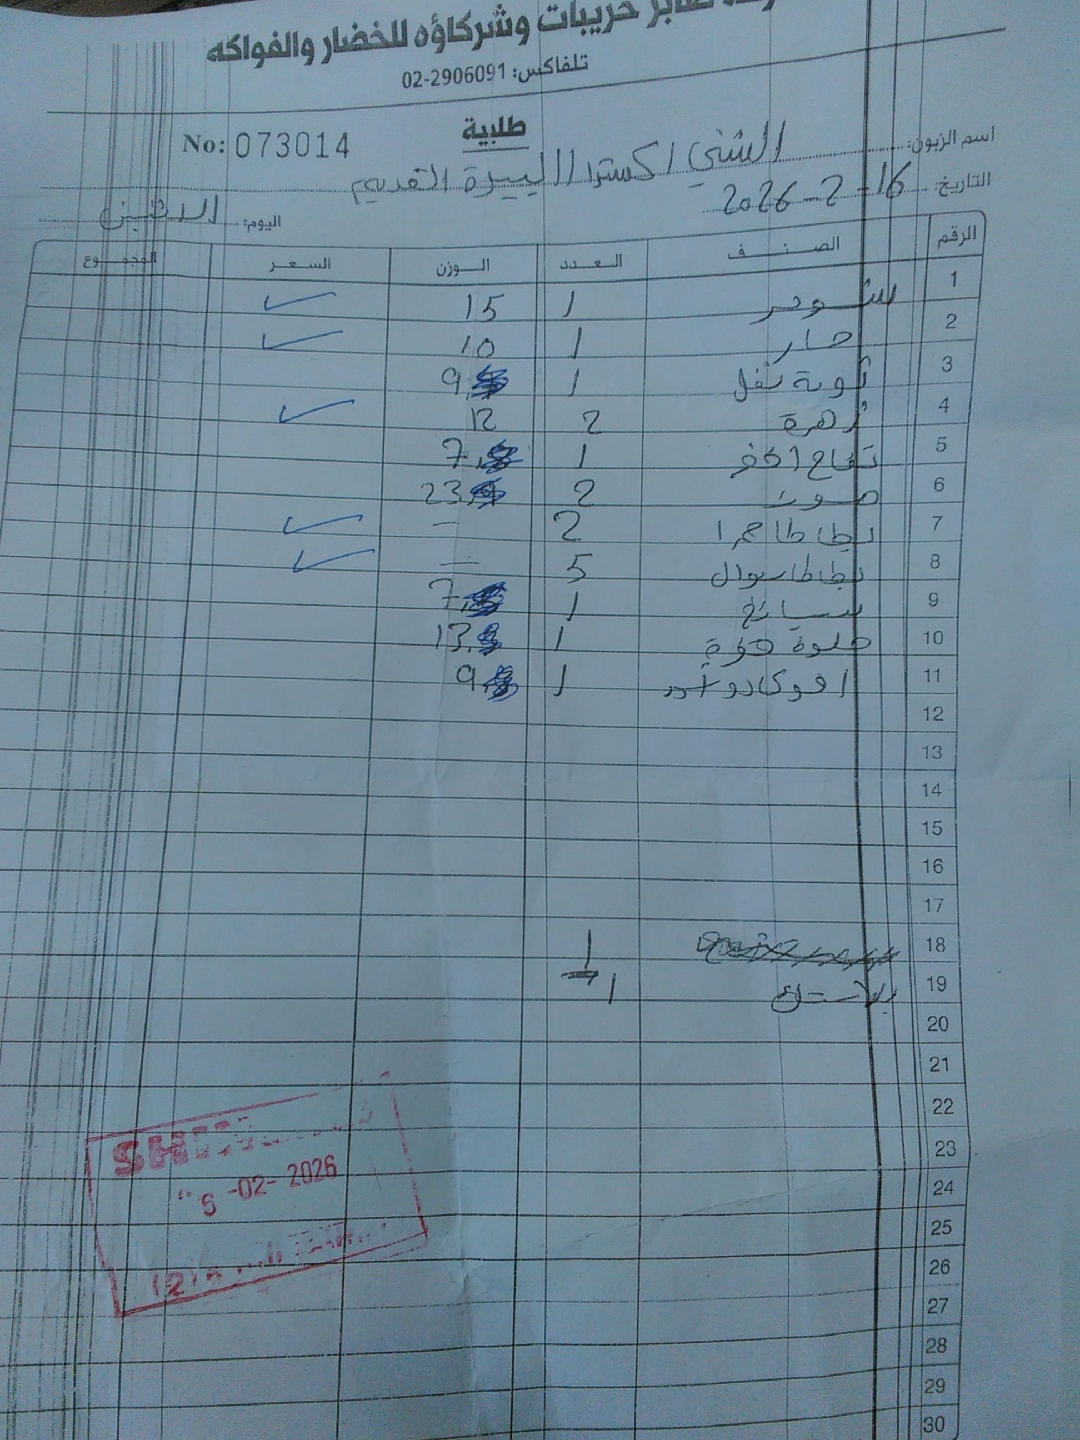 صابر حريبات وشركاؤه للخضار والفواكه
تلفاكس: 02-2906091
طلبية
No: 073014
اسم الزبون: الشني اكسترا البيرة القديم
التاريخ: 16-2-2026
اليوم: الاثنين
الرقم الصنف العدد الوزن السعر المجموع
1 1 15
2 حار 1 10
3 1 9
4 زهرة 2 12
5 تفاح اخضر 1 7
6 موز 2 23
7 بطاطا حمرا 2 –
8 بطاطا سوال 5 –
9 سبانخ 1 7
10 1 13
11 افوكادو 1 9
12
13
14
15
16
17
18 1
19 بلاستك 1
20
21
22
23
24
25
26
27
28
29
30
6 -02- 2026